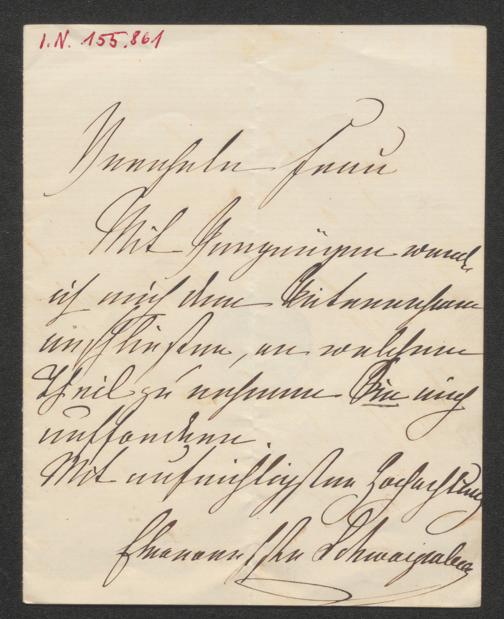 I.N. 155.861
Verehrte Frau
Mit Vergnügen werde
ich mich dem Unternehmen
anschließen, an welchem
Theil zu nehmen Sie mich
auffordern.
Mit aufrichtigster Hochachtung